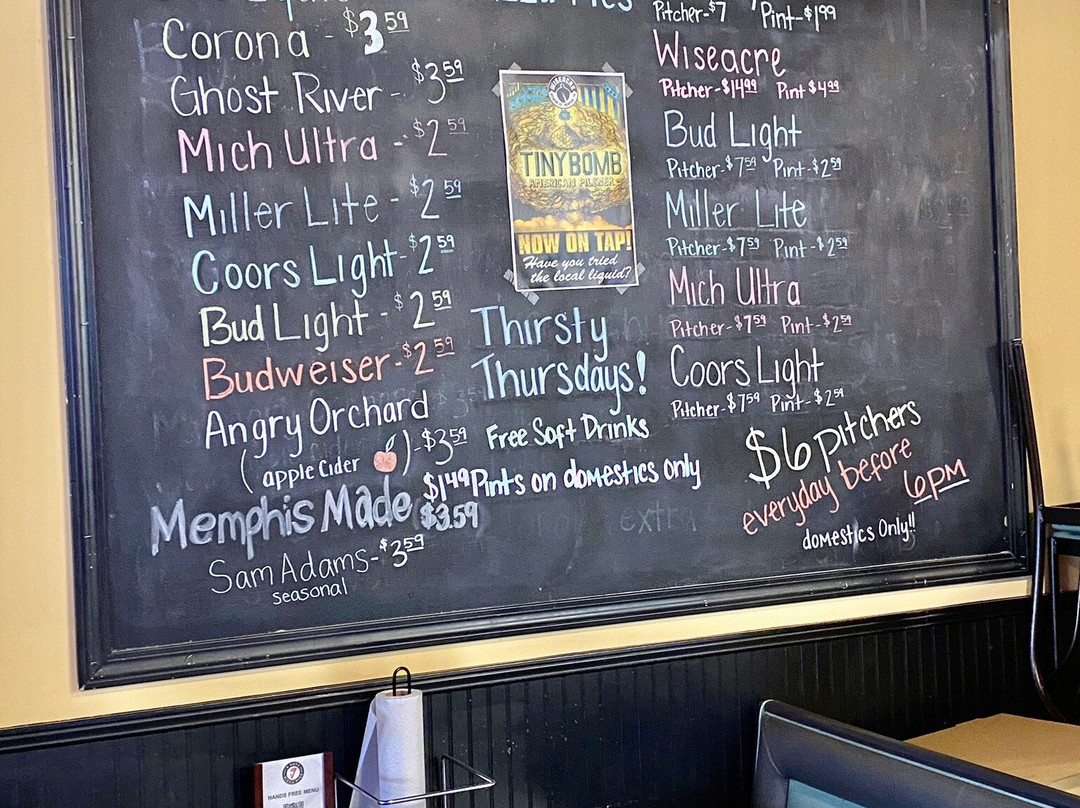 Corona - $3.59
Ghost River - $3.59
Mich Ultra - $2.59
Miller Lite - $2.59
Coors Light - $2.59
Bud Light - $2.59
Budweiser - $2.59
Angry Orchard
(apple cider) - $3.59
Memphis Made $3.59
Sam Adams - $3.59
seasonal
WISEACRE
TINY BOMB
AMERICAN PILSNER
NOW ON TAP!
Have you tried
the local liquid?
Thirsty
Thursdays!
Free Soft Drinks
$1.49 Pints on domestics only
extra
Pitcher-$7 Pint-$1.99
Wiseacre
Pitcher-$14.99 Pint $4.99
Bud Light
Pitcher-$7.59 Pint-$2.59
Miller Lite
Pitcher-$7.59 Pint-$2.59
Mich Ultra
Pitcher-$7.59 Pint-$2.59
Coors Light
Pitcher-$7.59 Pint-$2.59
$6 pitchers
everyday before
6pm
domestics Only!!
7
HANDS FREE MENU